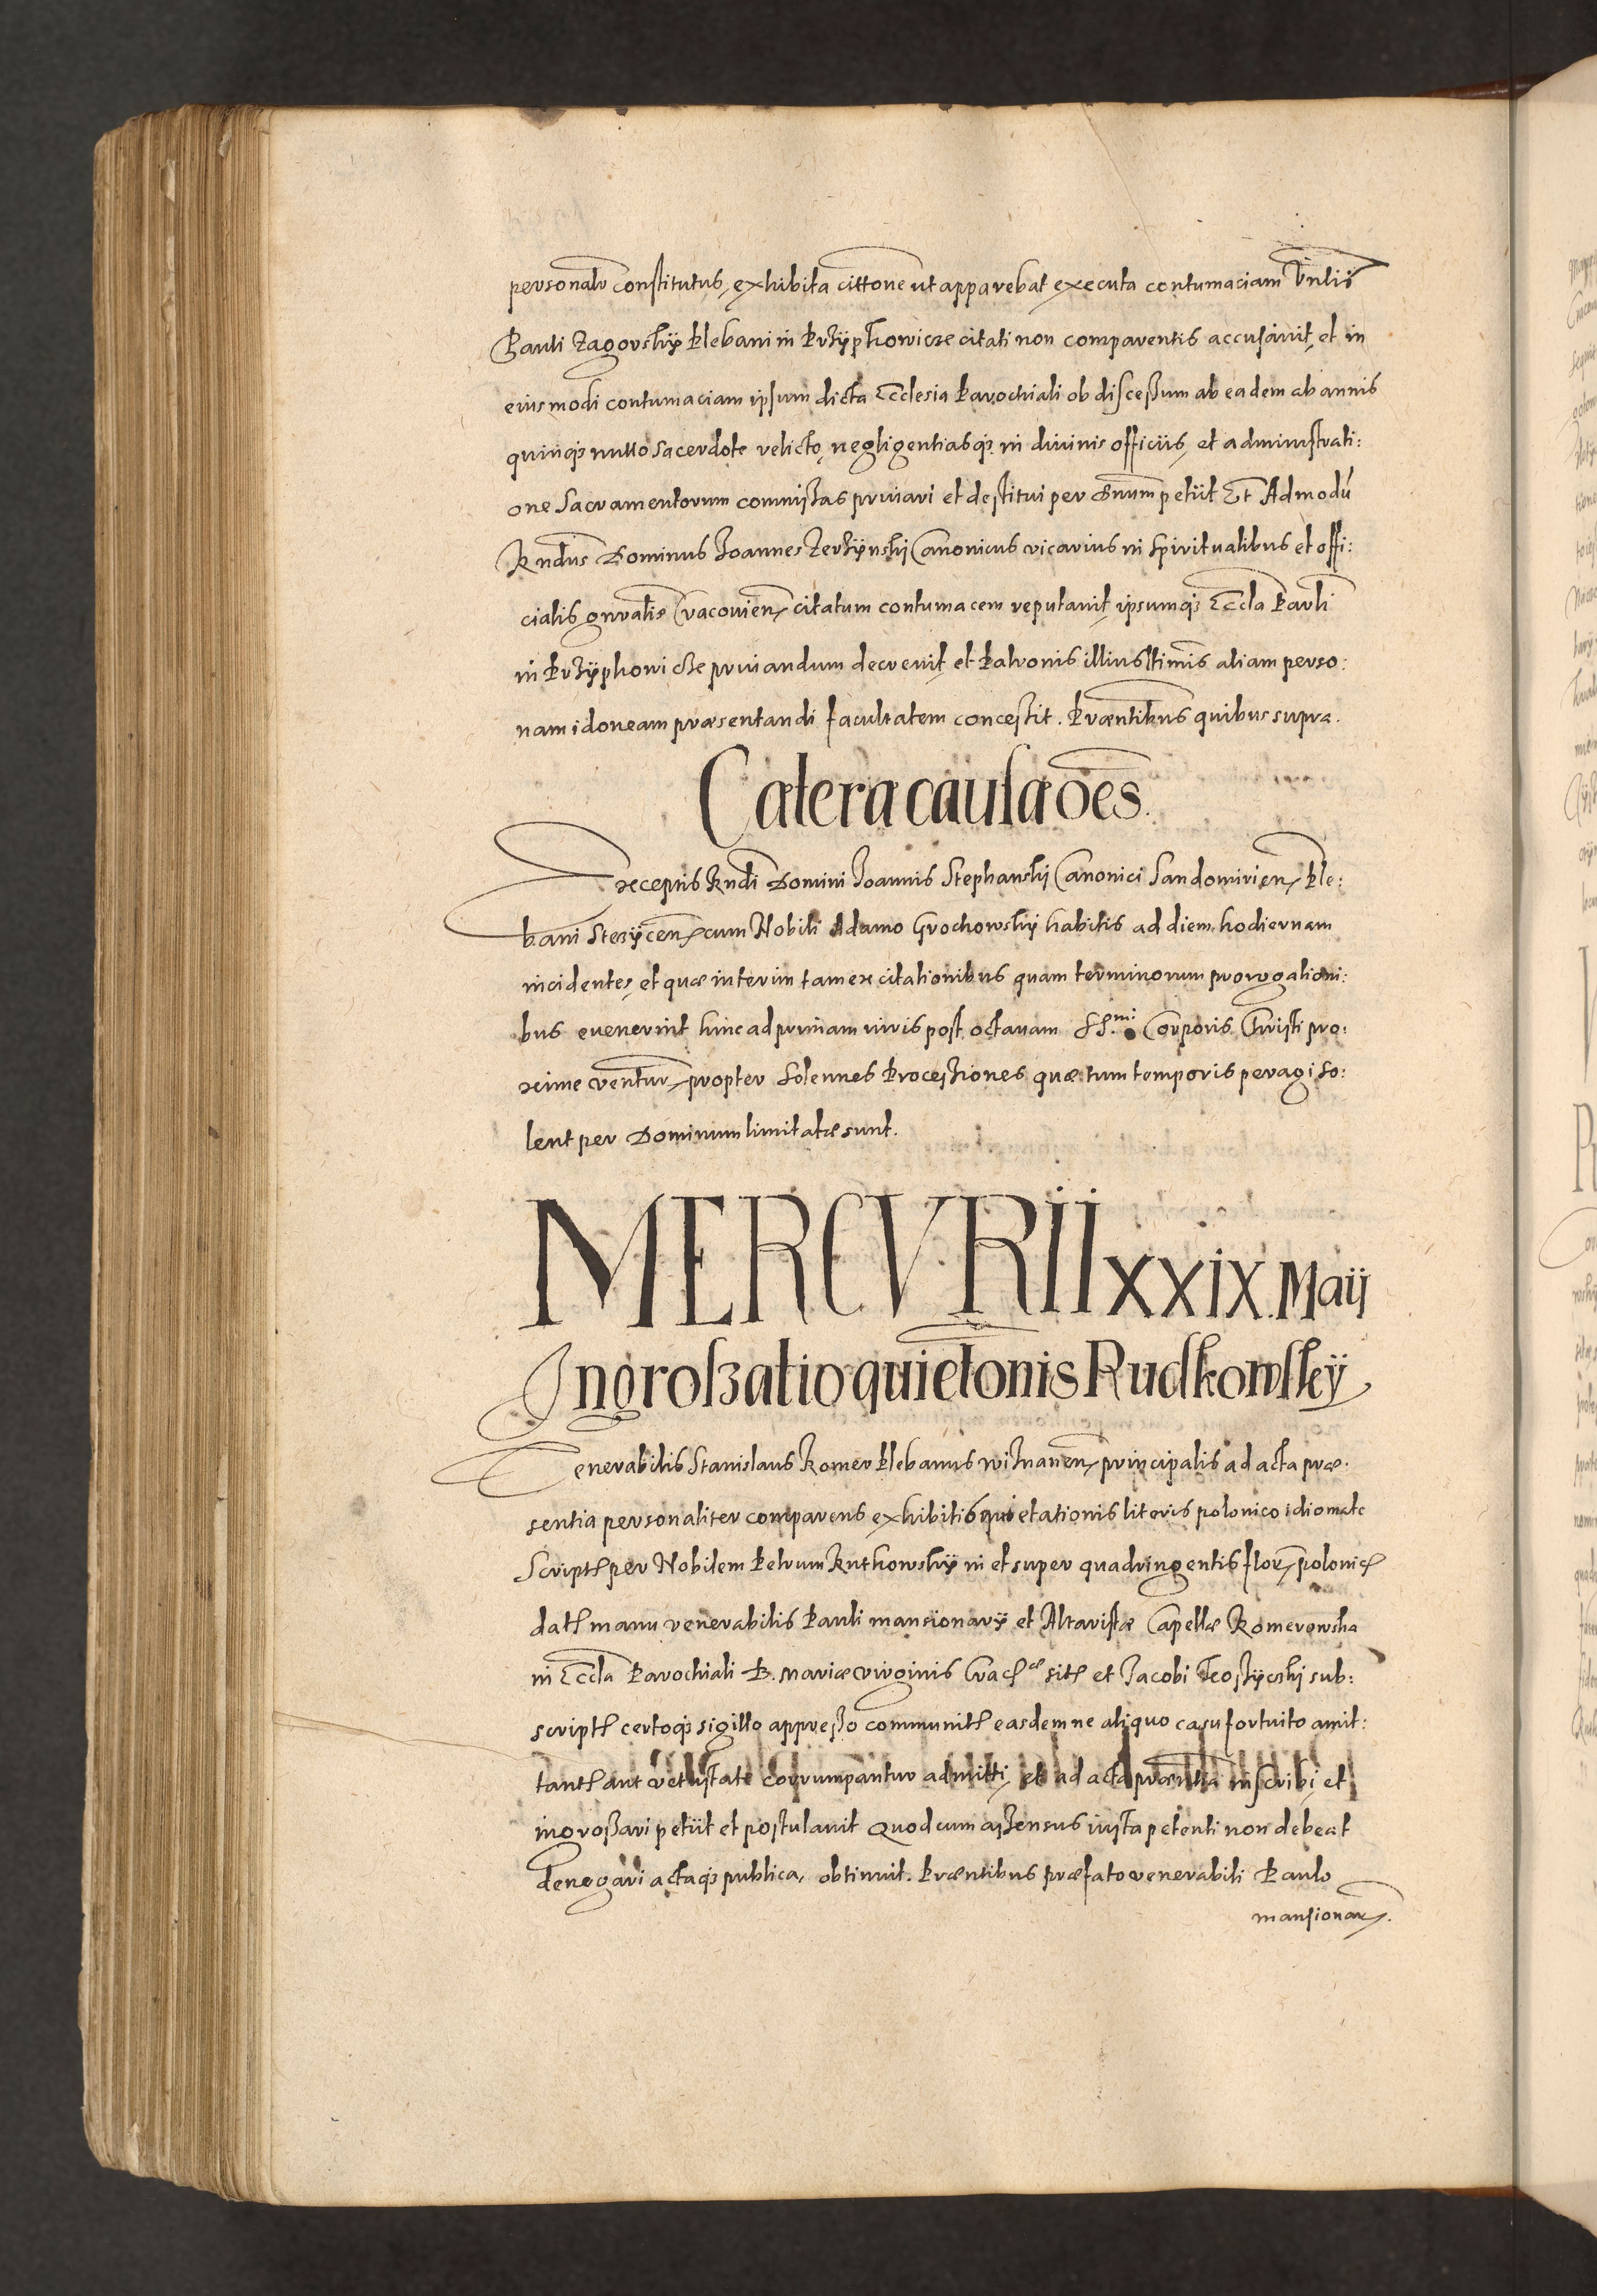 personalr constitutus, exhibita cittone ut apparebat executa contumaciam Vnlis
Pauli Zagorskÿ Plebani in Przÿphowicze citati non comparentis accusauit, et in
eiusmodi contumaciam ipsum dicta Ecclesia Parochiali ob discessum ab eadem ab annis
quinqȝ nullo sacerdote relicto, negligentiasqȝ in diuinis officiis, et administrati:
one Sacramentorum commissas priuari et destitui per Dnum petiit Et Admodū
Rndus Dominus Joannes Zerzÿnski Canonicus vicarius in Spiritualibus et offi:
cialis gnralis Cracouien, citatum contumacem reputauit, ipsumqȝ Eccla Parli
in Przÿphowicze priuandum decreuit, et Patronis illius ltimis aliam perso:
nam idoneam præsentandi facultatem concessit. Præntibus quibus supra.
Cætera causæ oes.
Exceptis Rndi Domini Joannis Stephanski Canonici Sandomirien, Ple:
bani Stezÿcen, cum Nobili Adamo Grochowskÿ habitis ad diem hodiernam
incidentes, et quæ interim tam ex citationibus quam terminorum prorogationi:
bus euenerint hinc ad primam iuris post octauam SS.mi Corporis Christi pro:
xime ventur, propter Solennes Processiones quæ tum temporis peragi so:
lent per Dominum limitatæ sunt.
MERCVRII XXIX. Maij
Ingroszatio quietonis Rudkowskÿ
Venerabilis Stanislaus Komer Plebanus wiznanen, principalis ad acta præ:
sentia personaliter comparens exhibitis quietationis literis polonico idiomate
Script per Nobilem Petrum Rutkowskÿ in et super quadringentis flor, polonic
dat manu venerabilis Pauli mansionarÿ et Altaristæ Capellæ Komerowska
in Eccla Parochiali B. Mariæ virginis Crac æ sit et Jacobi sub:
script certoqȝ sigillo appresso communit easdem ne aliquo casu fortuito amit:
tant aut vetustate corrumpantur admitti, et ad acta præsentia inscribi, et
ingrossari petiit et postulauit Quod cum assensus iusta petenti non debeat
denegari actaqȝ publica, obtinuit. Præntibus præfato venerabili Paulo
mansionar.